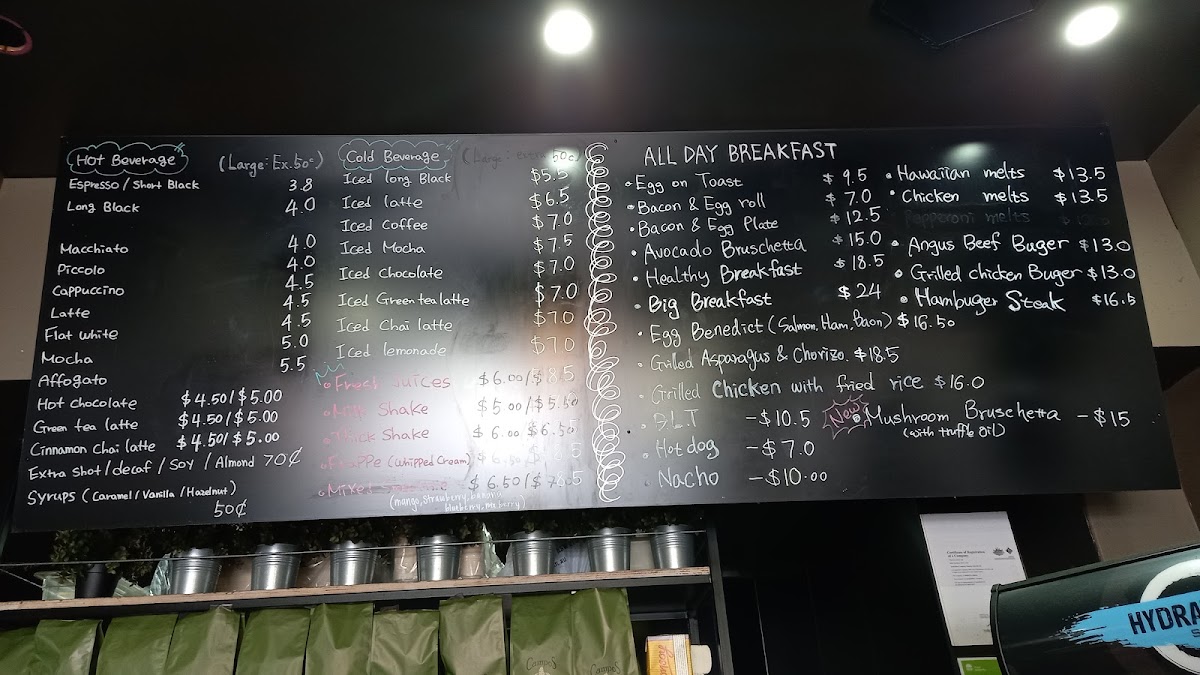 Hot Beverage (Large: Ex. 50c)
Espresso / Short Black 3.8
Long Black 4.0
Macchiato 4.0
Piccolo 4.0
Cappuccino 4.5
Latte 4.5
Flat white 4.5
Mocha 5.0
Affogato 5.5
Hot chocolate $4.50/$5.00
Green tea latte $4.50/$5.00
Cinnamon Chai latte $4.50/$5.00
Extra Shot/decaf/Soy/Almond 70¢
Syrups (Caramel/Vanilla/Hazelnut)
50¢
Cold Beverage (Large: extra 50c)
Iced long Black $5.5
Iced latte $6.5
Iced Coffee $7.0
Iced Mocha $7.5
Iced Chocolate $7.0
Iced Green tea latte $7.0
Iced Chai latte $7.0
Iced lemonade $7.0
Fresh Juices $6.00/$8.5
Milk Shake $5.00/$5.50
Thick Shake $6.00 $6.50
Frappe (Whipped Cream)
Mixed $6.50/$7.65
(mango, strawberry, banana
blueberry,
ALL DAY BREAKFAST
• Egg on Toast $9.5
• Bacon & Egg roll $7.0
• Bacon & Egg Plate $12.5
• Avocado Bruschetta $15.0
• Healthy Breakfast $18.5
• Big Breakfast $24
• Egg Benedict (Salmon, Ham, Bacon) $16.50
• Grilled Asparagus & Chorizo. $18.5
• Grilled Chicken with fried rice $16.0
• BLT -$10.5
• Hot dog -$7.0
Nacho -$10.00
• Hawaiian melts $13.5
• Chicken melts $13.5
Pepperoni melts
• Angus Beef Buger $13.0
• Grilled chicken Buger $13.0
• Hambuger Steak $16.5
New Mushroom Bruschetta -$15
(with truffle oil)
Certificate of Registration
of a Company
HYDRA
Campos
Campos